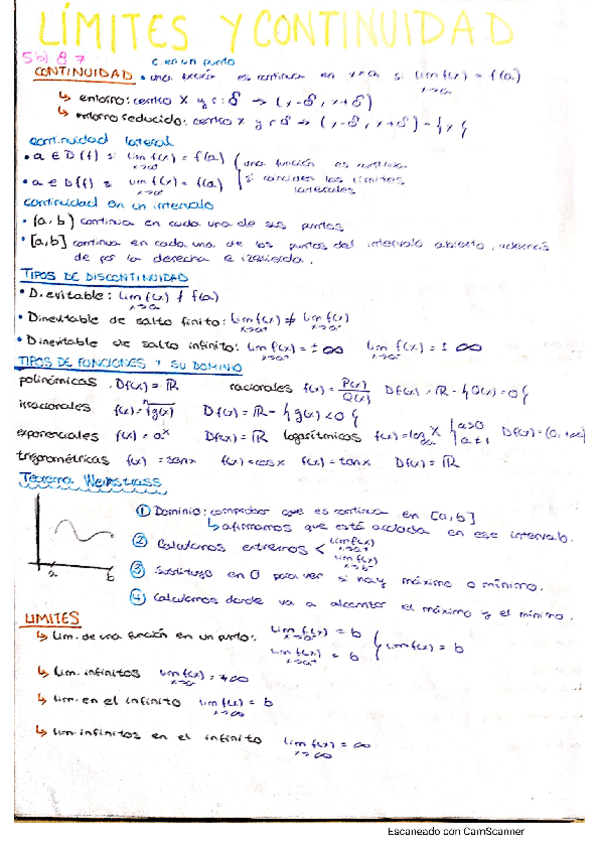 LÍMITES Y CONTINUIDAD
5b) 8 7
C. en un punto
CONTINUIDAD • una función es continua en x=a si lim f(x) = f(a)
x→a
↳ entorno: centro x y r: δ → (x-δ, x+δ)
↳ entorno reducido: centro x y r δ → (x-δ, x+δ) - {x}
continuidad lateral
• a ∈ D(f) si lim f(x) = f(a) { una función es continua
x→a⁺
• a ∈ D(f) si lim f(x) = f(a) { si coinciden los límites
x→a⁻ laterales
continuidad en un intervalo
• (a,b) continua en cada uno de sus puntos
• [a,b] continua en cada uno de los puntos del intervalo abierto, además
de por la derecha e izquierda.
TIPOS DE DISCONTINUIDAD
• D. evitable: lim f(x) ≠ f(a)
x→a
• D inevitable de salto finito: lim f(x) ≠ lim f(x)
• D inevitable de salto infinito: lim f(x) = ± ∞ lim f(x) = ± ∞
TIPOS DE FUNCIONES Y SU DOMINIO
polinómicas . Df(x) = ℝ racionales f(x) = P(x)/Q(x) Df(x) = ℝ - {Q(x) = 0}
irracionales f(x) = ⁿ√g(x) Df(x) = ℝ - {g(x) < 0}
exponenciales f(x) = aˣ Df(x) = ℝ logarítmicas f(x) = logₐ x { a>0 a≠1 Df(x) = (0, +∞)
trigonométricas f(x) = senx f(x) = cosx f(x) = tanx Df(x) = ℝ
Teorema Weirstrass
① Dominio: comprobar que es continua en [a,b]
↳ afirmamos que está acotada en ese intervalo.
② Calculamos extremos < lim f(x)
x→a⁺
lim f(x)
x→b⁻
③ Sustituyo en 0 para ver si hay máximo o mínimo.
④ Calculamos donde va a alcanzar el máximo y el mínimo.
a b
LIMITES
↳ Lim. de una función en un punto: lim f(x) = b
x→a⁻
lim f(x) = b } lim f(x) = b
x→a⁺
↳ Lim. infinitos lim f(x) = +∞
x→a
↳ lim. en el infinito lim f(x) = b
x→∞
↳ lim infinitos en el infinito lim f(x) = ∞
x→∞
Escaneado con CamScanner